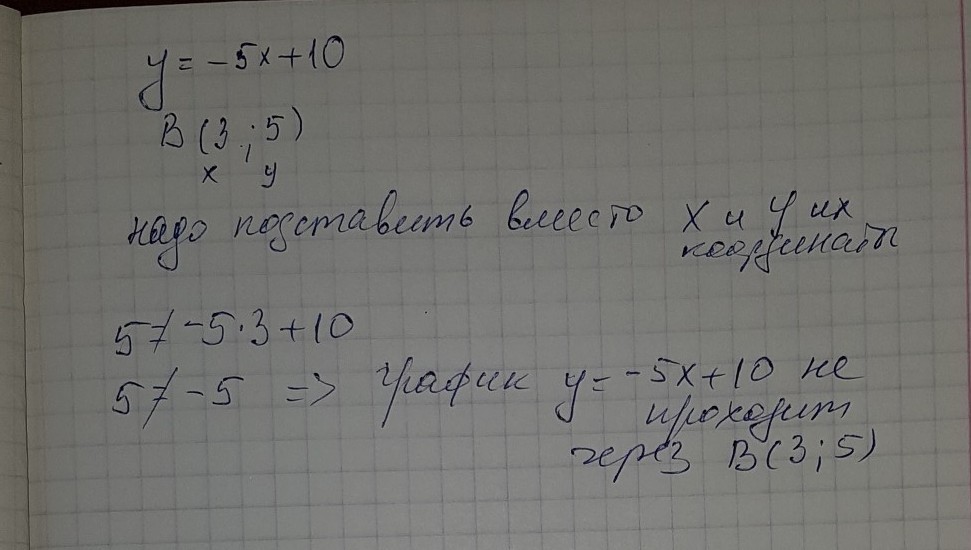 y = -5x+10
В (3 ; 5)
x y
надо подставить вместо x и y их
координаты
5 ≠ -5·3+10
5 ≠ -5 => график y = -5x+10 не
проходит
через В(3;5)